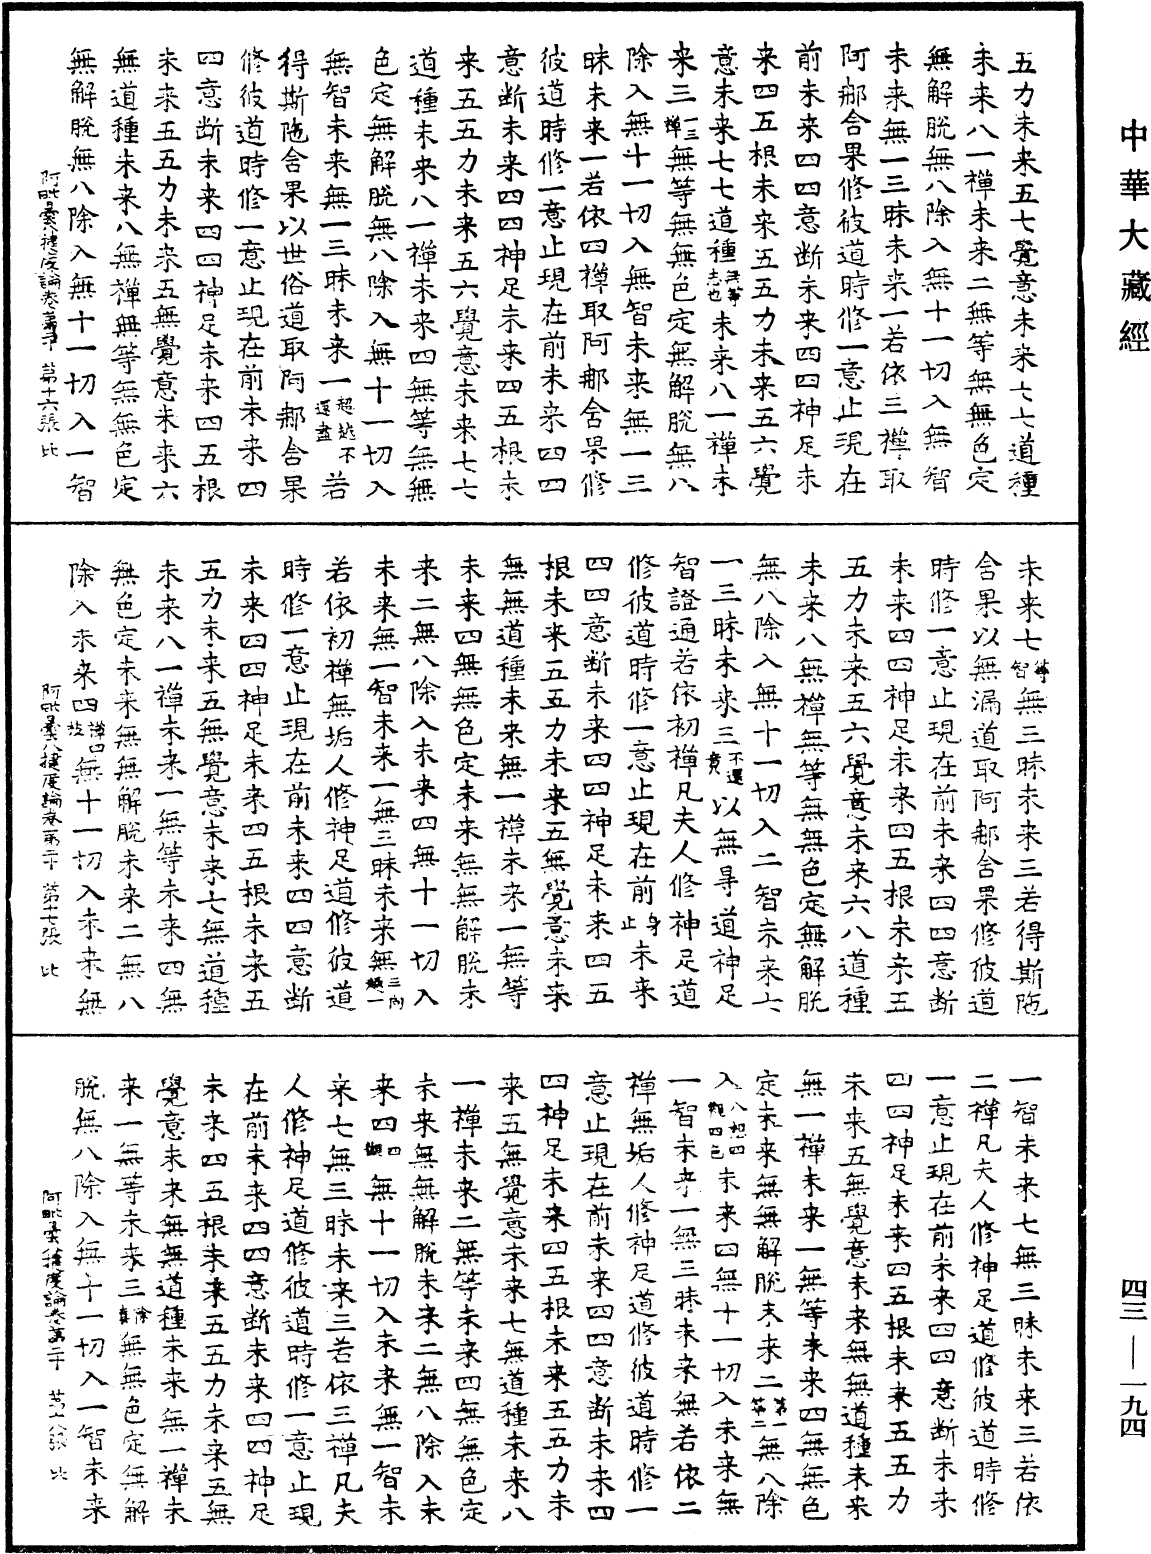 中華大藏經
五力未来五七覺意未来七七道種
未来八一禪未来二無等無無色定
無解脫無八除入無十一切入無智
未来無一三昧未来一若依三禪取
阿那含果修彼道時修一意止現在
前未来四四意斷未来四四神足未
来四五根未来五五力未来五六覺
意未来七七道種無等志也未来八一禪未
来三一三禪無等無無色定無解脫無八
除入無十一切入無智未来無一三
昧未来一若依四禪取阿那含果修
彼道時修一意止現在前未来四四
意斷未来四四神足未来四五根未
来五五力未来五六覺意未来七七
道種未来八一禪未来四無等無無
色定無解脫無八除入無十一切入
無智未来無一三昧未来一超越不還盡若
得斯陁含果以世俗道取阿那含果
修彼道時修一意止現在前未来四
四意斷未来四四神足未来四五根
未来五五力未来五無覺意未来六
無道種未来八無禪無等無無色定
無解脫無八除入無十一切入一智
阿毗曇八揵度論卷第二十 第十六張 比
未来七等智無三昧未来三若得斯陁
含果以無漏道取阿那含果修彼道
時修一意止現在前未来四四意斷
未来四四神足未来四五根未来五
五力未来五六覺意未来六八道種
未来八無禪無等無無色定無解脫
無八除入無十一切入二智未来七
一三昧未来三不還竟以無㝵道神足
智證通若依初禪凡夫人修神足道
修彼道時修一意止現在前身止未来
四四意斷未来四四神足未来四五
根未来五五力未来五無覺意未来
無無道種未来無一禪未来一無等
未来四無無色定未来無無解脫未
来二無八除入未来四無十一切入
未来無一智未来一無三昧未来無三向頞一
若依初禪無垢人修神足道修彼道
時修一意止現在前未来四四意斷
未来四四神足未来四五根未来五
五力未来五無覺意未来七無道種
未来八一禪未来一無等未来四無
無色定未来無無解脫未来二無八
除入未来四禪四枝無十一切入未来無
阿毗曇八揵度論卷第二十 第十七張 比
一智未来七無三昧未来三若依
二禪凡夫人修神足道修彼道時修
一意止現在前未来四四意斷未来
四四神足未来四五根未来五五力
未来五無覺意未来無無道種未来
無一禪未来一無等未来四無無色
定未来無無解脫未来二第一第二無八除
入八想四觀四色未来四無十一切入未来無
一智未来一無三昧未来無若依二
禪無垢人修神足道修彼道時修一
意止現在前未来四四意斷未来四
四神足未来四五根未来五五力未
来五無覺意未来七無道種未来八
一禪未来二無等未来四無無色定
未来無無解脫未来二無八除入未
来四四觀無十一切入未来無一智未
来七無三昧未来三若依三禪凡夫
人修神足道修彼道時修一意止現
在前未来四四意斷未来四四神足
未来四五根未来五五力未来五無
覺意未来無無道種未来無一禪未
来一無等未来三除喜無無色定無解
脫無八除入無十一切入一智未来
阿毗曇八揵度論卷第二十 第十八張 比
四三—一九四